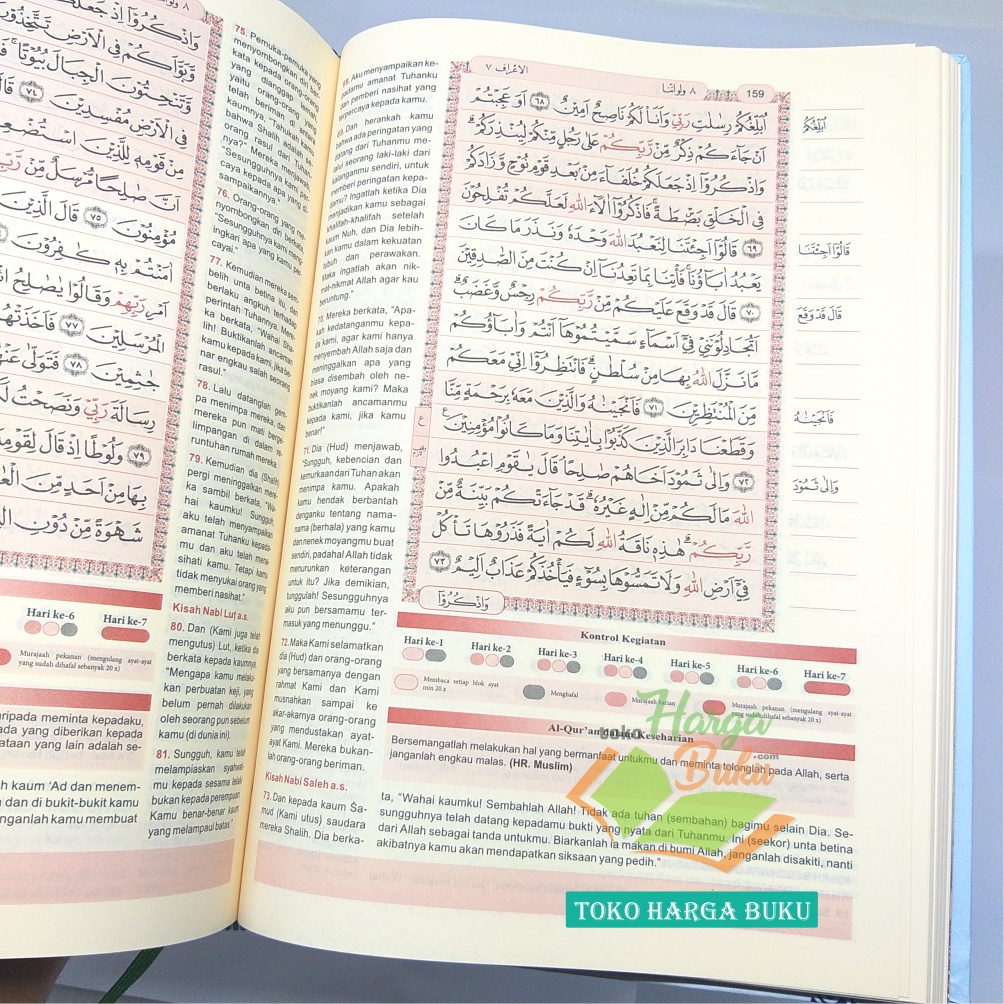 الاعراف ٧
٨ ولواننا
159
اُبَلِّغُكُمْ رِسٰلٰتِ رَبِّيْ وَاَنَا۠ لَكُمْ نَاصِحٌ اَمِيْنٌ ٦٨ اَوَعَجِبْتُمْ
اَنْ جَاۤءَكُمْ ذِكْرٌ مِّنْ رَّبِّكُمْ عَلٰى رَجُلٍ مِّنْكُمْ لِيُنْذِرَكُمْۗ
وَاذْكُرُوْٓا اِذْ جَعَلَكُمْ خُلَفَاۤءَ مِنْۢ بَعْدِ قَوْمِ نُوْحٍ وَّزَادَكُمْ
فِى الْخَلْقِ بَصْۜطَةً ۚفَاذْكُرُوْٓا اٰلَاۤءَ اللّٰهِ لَعَلَّكُمْ تُفْلِحُوْنَ
٦٩ قَالُوْٓا اَجِئْتَنَا لِنَعْبُدَ اللّٰهَ وَحْدَهٗ وَنَذَرَ مَا كَانَ
يَعْبُدُ اٰبَاۤؤُنَاۚ فَأْتِنَا بِمَا تَعِدُنَآ اِنْ كُنْتَ مِنَ الصّٰدِقِيْنَ
٧٠ قَالَ قَدْ وَقَعَ عَلَيْكُمْ مِّنْ رَّبِّكُمْ رِجْسٌ وَّغَضَبٌۗ
اَتُجَادِلُوْنَنِيْ فِيْٓ اَسْمَاۤءٍ سَمَّيْتُمُوْهَآ اَنْتُمْ وَاٰبَاۤؤُكُمْ
مَّا نَزَّلَ اللّٰهُ بِهَا مِنْ سُلْطٰنٍۗ فَانْتَظِرُوْٓا اِنِّيْ مَعَكُمْ
مِّنَ الْمُنْتَظِرِيْنَ ٧١ فَاَنْجَيْنٰهُ وَالَّذِيْنَ مَعَهٗ بِرَحْمَةٍ مِّنَّا
وَقَطَعْنَا دَابِرَ الَّذِيْنَ كَذَّبُوْا بِاٰيٰتِنَا وَمَا كَانُوْا مُؤْمِنِيْنَ
٧٢ وَاِلٰى ثَمُوْدَ اَخَاهُمْ صٰلِحًاۘ قَالَ يٰقَوْمِ اعْبُدُوا
اللّٰهَ مَا لَكُمْ مِّنْ اِلٰهٍ غَيْرُهٗۗ قَدْ جَاۤءَتْكُمْ بَيِّنَةٌ مِّنْ
رَّبِّكُمْۗ هٰذِهٖ نَاقَةُ اللّٰهِ لَكُمْ اٰيَةً فَذَرُوْهَا تَأْكُلْ
فِيْٓ اَرْضِ اللّٰهِ وَلَا تَمَسُّوْهَا بِسُوْۤءٍ فَيَأْخُذَكُمْ عَذَابٌ اَلِيْمٌ ٧٣
وَاذْكُرُوْٓا
اُبَلِّغُكُمْ
قَالُوْٓا اَجِئْتَنَا
قَالَ قَدْ وَقَعَ
فَاَنْجَيْنٰهُ
وَاِلٰى ثَمُوْدَ
75. Pemuka-pemuka yang
menyombongkan diri ber-
kata kepada orang-orang
yang dianggap lemah,
yaitu orang-orang yang
telah beriman di antara
kaumnya, "Tahukah kamu
bahwa Shalih adalah se-
orang rasul dari Tuhan-
nya?" Mereka menjawab,
"Sesungguhnya kami per-
caya kepada apa yang di-
sampaikannya."
76. Orang-orang yang me-
nyombongkan diri berkata,
"Sesungguhnya kami meng-
ingkari apa yang kamu per-
cayai."
77. Kemudian mereka sem-
belih unta betina itu, dan
berlaku angkuh terhadap
perintah Tuhannya. Mere-
ka berkata, "Wahai Sha-
lih! Buktikanlah ancaman
kamu kepada kami, jika be-
nar engkau salah seorang
rasul."
78. Lalu datanglah gem-
pa menimpa mereka, dan
mereka pun mati berge-
limpangan di dalam re-
runtuhan rumah mereka.
79. Kemudian dia (Shalih)
pergi meninggalkan mere-
ka sambil berkata, "Wa-
hai kaumku! Sungguh,
aku telah menyampaikan
amanat Tuhanku kepada-
mu dan aku telah mena-
sihati kamu. Tetapi kamu
tidak menyukai orang yang
memberi nasihat."
Kisah Nabi Luṭ a.s.
80. Dan (Kami juga telah
mengutus) Lut, ketika dia
berkata kepada kaumnya,
"Mengapa kamu melaku-
kan perbuatan keji, yang
belum pernah dilakukan
oleh seorang pun sebelum
kamu (di dunia ini).
81. Sungguh, kamu telah
melampiaskan syahwat-
mu kepada sesama lelaki
bukan kepada perempuan.
Kamu benar-benar kaum
yang melampaui batas."
68. Aku menyampaikan ke-
padamu amanat Tuhanku
dan pemberi nasihat yang
terpercaya kepada kamu.
69. Dan herankah kamu
bahwa ada peringatan yang
datang dari Tuhanmu me-
lalui seorang laki-laki dari
kalanganmu sendiri, untuk
memberi peringatan kepa-
damu? Ingatlah ketika Dia
menjadikan kamu sebagai
khalifah-khalifah setelah
kaum Nuh, dan Dia lebih-
kan kamu dalam kekuatan
tubuh dan perawakan.
Maka ingatlah akan nik-
mat-nikmat Allah agar kau
beruntung."
70. Mereka berkata, "Apa-
kah kedatanganmu kepa-
da kami, agar kami hanya
menyembah Allah saja dan
meninggalkan apa yang
biasa disembah oleh ne-
nek moyang kami? Maka
buktikanlah ancamanmu
kepada kami, jika kamu
benar!"
71. Dia (Hud) menjawab,
"Sungguh, kebencian dan
kemurkaan dari Tuhan akan
menimpa kamu. Apakah
kamu hendak berbantah
denganku tentang nama-
nama (berhala) yang kamu
dan nenek moyangmu buat
sendiri, padahal Allah tidak
menurunkan keterangan
untuk itu? Jika demikian,
tunggulah! Sesungguhnya
aku pun bersamamu ter-
masuk yang menunggu."
72. Maka Kami selamatkan
dia (Hud) dan orang-orang
yang bersamanya dengan
rahmat Kami dan Kami
musnahkan sampai ke
akar-akarnya orang-orang
yang mendustakan ayat-
ayat Kami. Mereka bukan-
lah orang-orang beriman.
Kisah Nabi Saleh a.s.
73. Dan kepada kaum Ṡa-
mud (Kami utus) saudara
mereka Shalih. Dia berka-
ta, "Wahai kaumku! Sembahlah Allah! Tidak ada tuhan (sembahan) bagimu selain Dia. Se-
sungguhnya telah datang kepadamu bukti yang nyata dari Tuhanmu. Ini (seekor) unta betina
dari Allah sebagai tanda untukmu. Biarkanlah ia makan di bumi Allah, janganlah disakiti, nanti
akibatnya kamu akan mendapatkan siksaan yang pedih."
Kontrol Kegiatan
Hari ke-1 Hari ke-2 Hari ke-3 Hari ke-4 Hari ke-5 Hari ke-6 Hari ke-7
Membaca setiap blok ayat
min 20 x
Menghafal
Murajaah harian
Murajaah pekanan (mengulang ayat-ayat
yang sudah dihafal sebanyak 20 x)
Al-Qur'an dalam Keseharian
Bersemangatlah melakukan hal yang bermanfaat untukmu dan meminta tolonglah pada Allah, serta
janganlah engkau malas. (HR. Muslim)
Hari ke-6 Hari ke-7
Murajaah pekanan (mengulang ayat-ayat
yang sudah dihafal sebanyak 20 x)
daripada meminta kepadaku,
kaum 'Ad dan menem-
dan di bukit-bukit kamu
janganlah kamu membuat
toko Harga Buku .com
TOKO HARGA BUKU